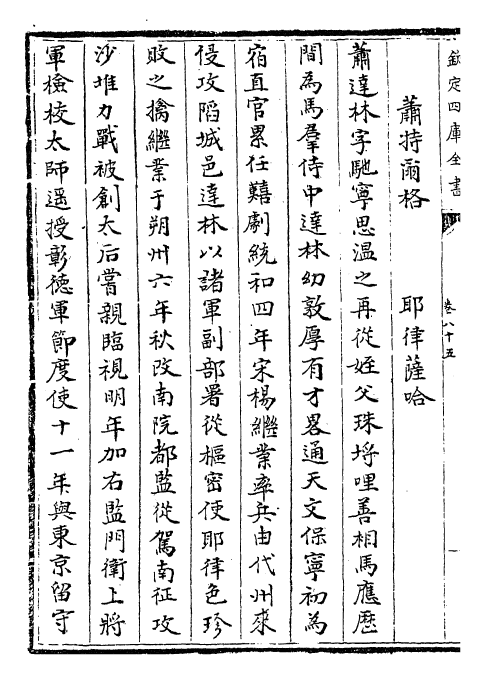 欽定四庫全書
卷八十五
一
蕭特爾格　耶律薩哈
蕭達林字馳寧思温之再從姪父珠埒哩善相馬應歴
間為馬羣侍中達林幼敦厚有才畧通天文保寧初為
宿直官累任囏劇統和四年宋楊繼業率兵由代州來
侵攻䧟城邑達林以諸軍副部署從樞密使耶律色珍
敗之擒繼業于朔州六年秋改南院都監從駕南征攻
沙堆力戰被創太后嘗親臨視明年加右監門衛上將
軍檢校太師遥授彰徳軍節度使十一年與東京留守